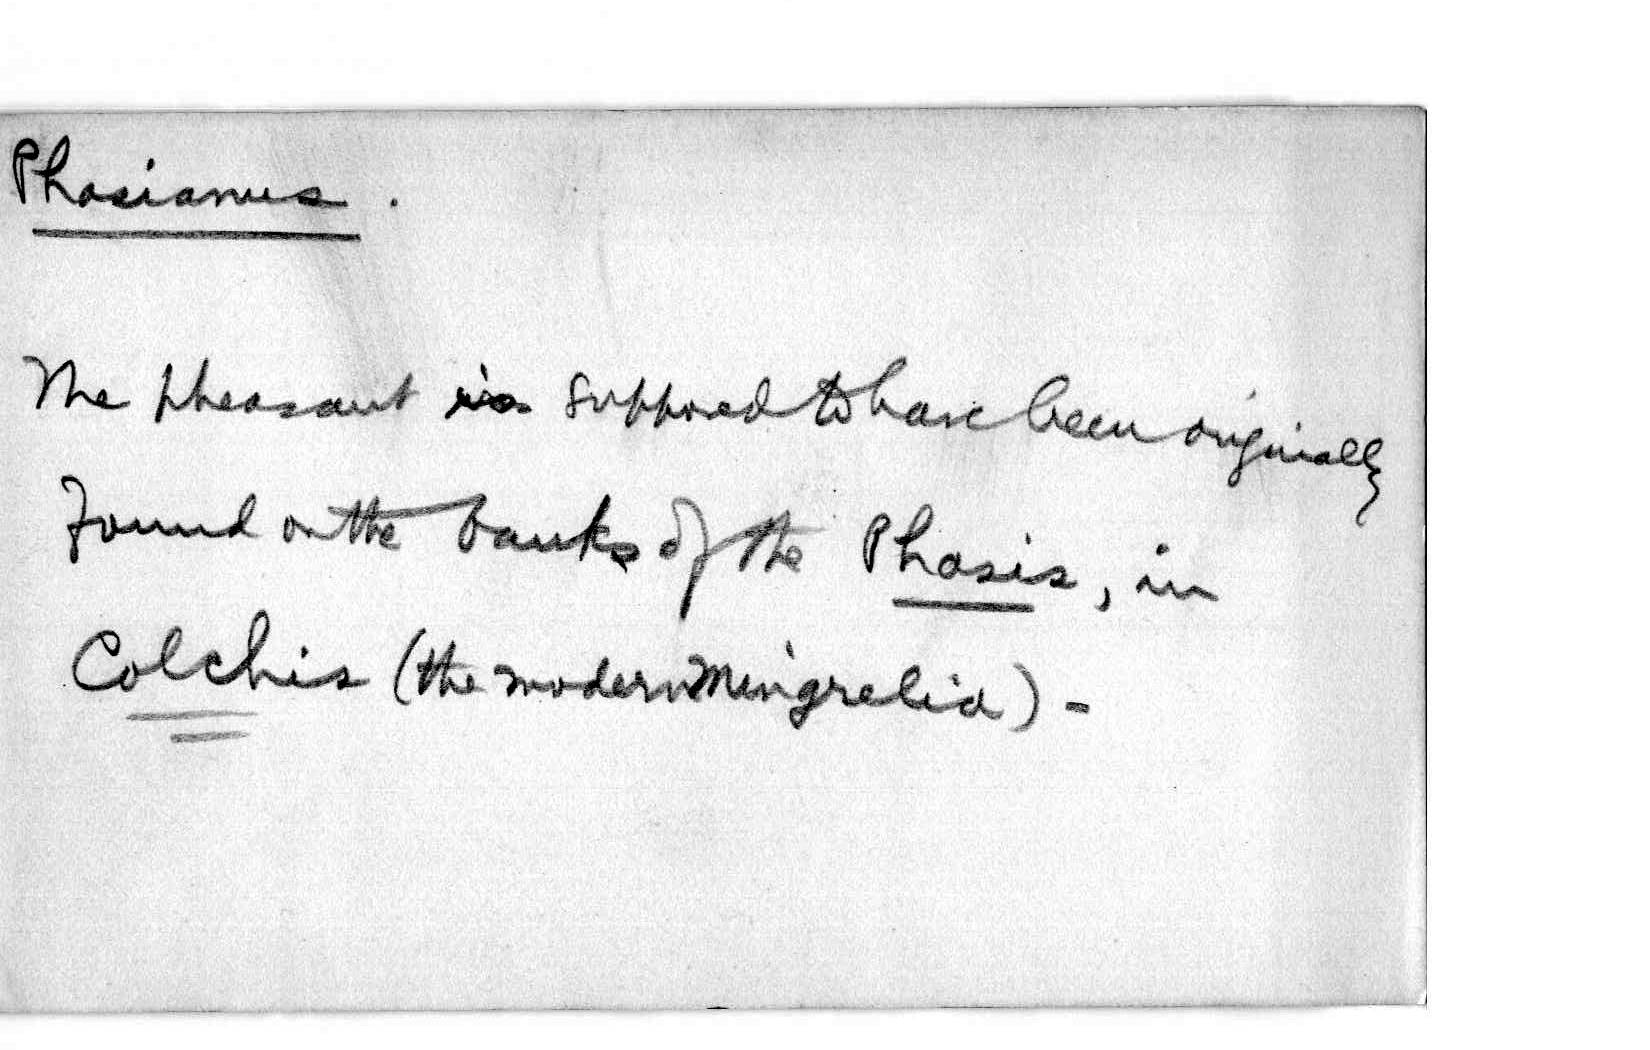 Phasianus.
The pheasant is supposed to have been originally
found on the banks of the Phasis, in
Colchis (the modern Mingrelia) -